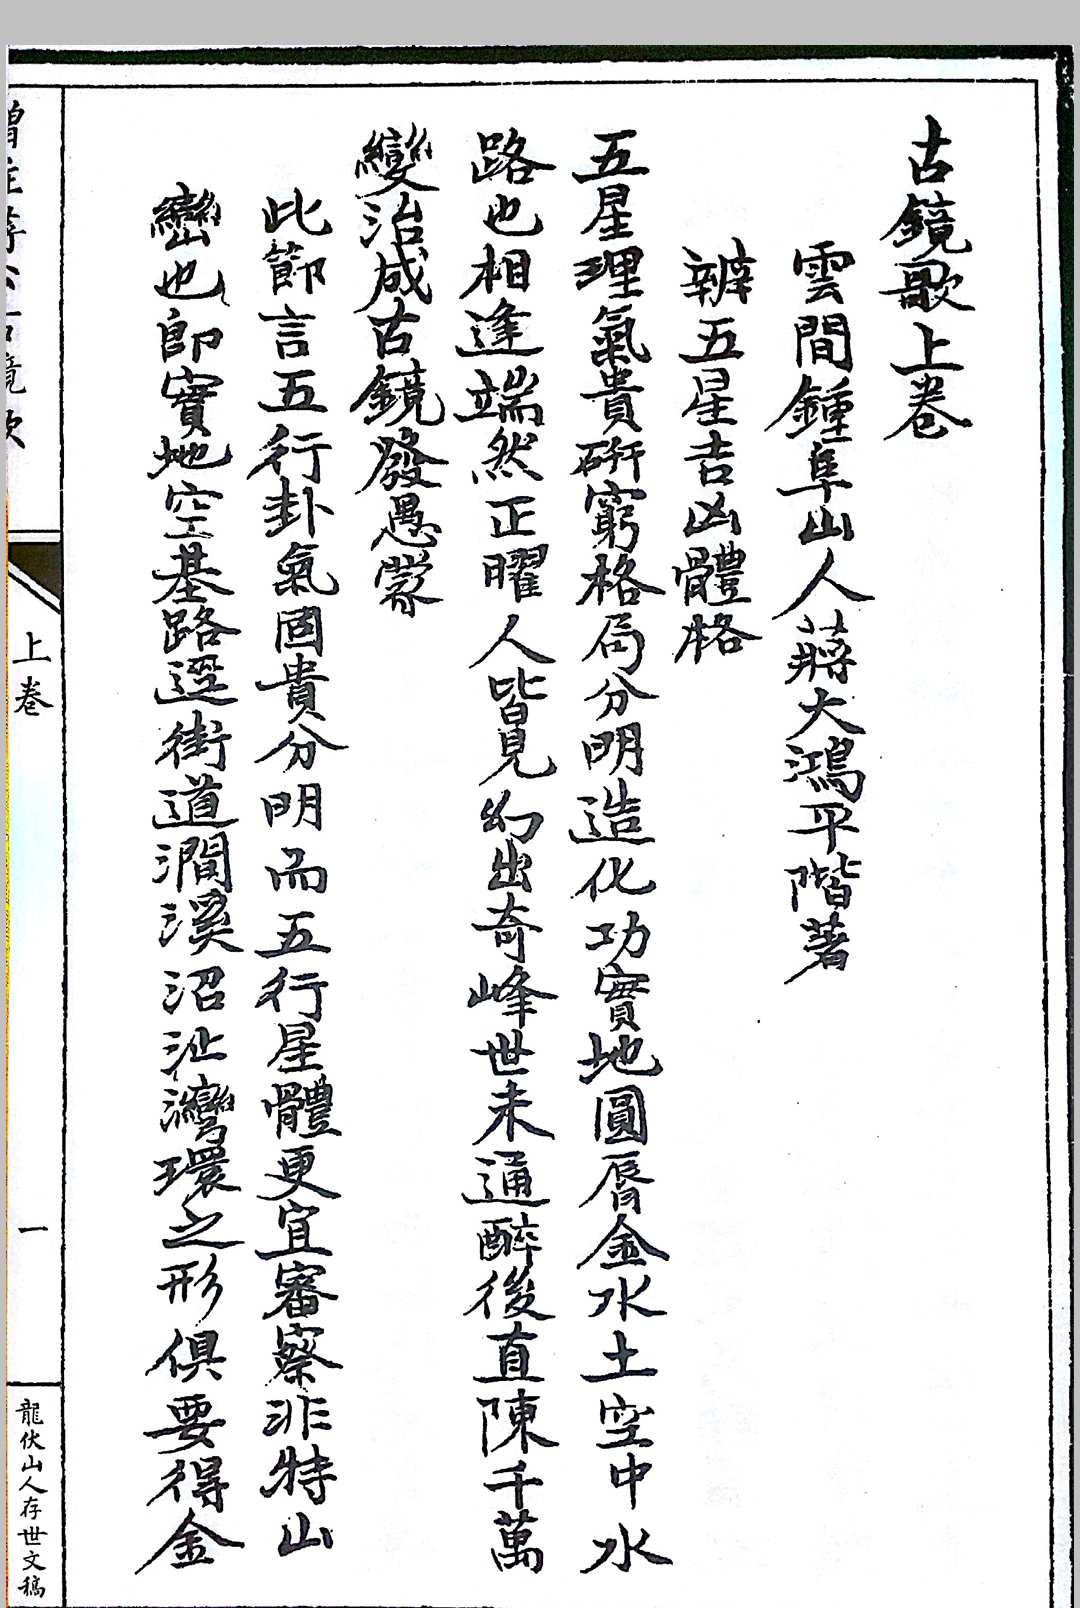 古鏡歌上卷
雲間鍾阜山人蔣大鴻平階著
辨五星吉凶體格
五星理氣貴研窮格局分明造化功實地圓脣金水土空中水
路也相逢端然正曜人皆見幻出奇峰世未通醉後直陳千萬
變治成古鏡發愚蒙
此節言五行卦氣固貴分明而五行星體更宜審察非特山
巒也即實地空基路逕街道澗溪沼沚灣環之形俱要得金
古鏡歌
上卷
一
龍伏山人存世文稿